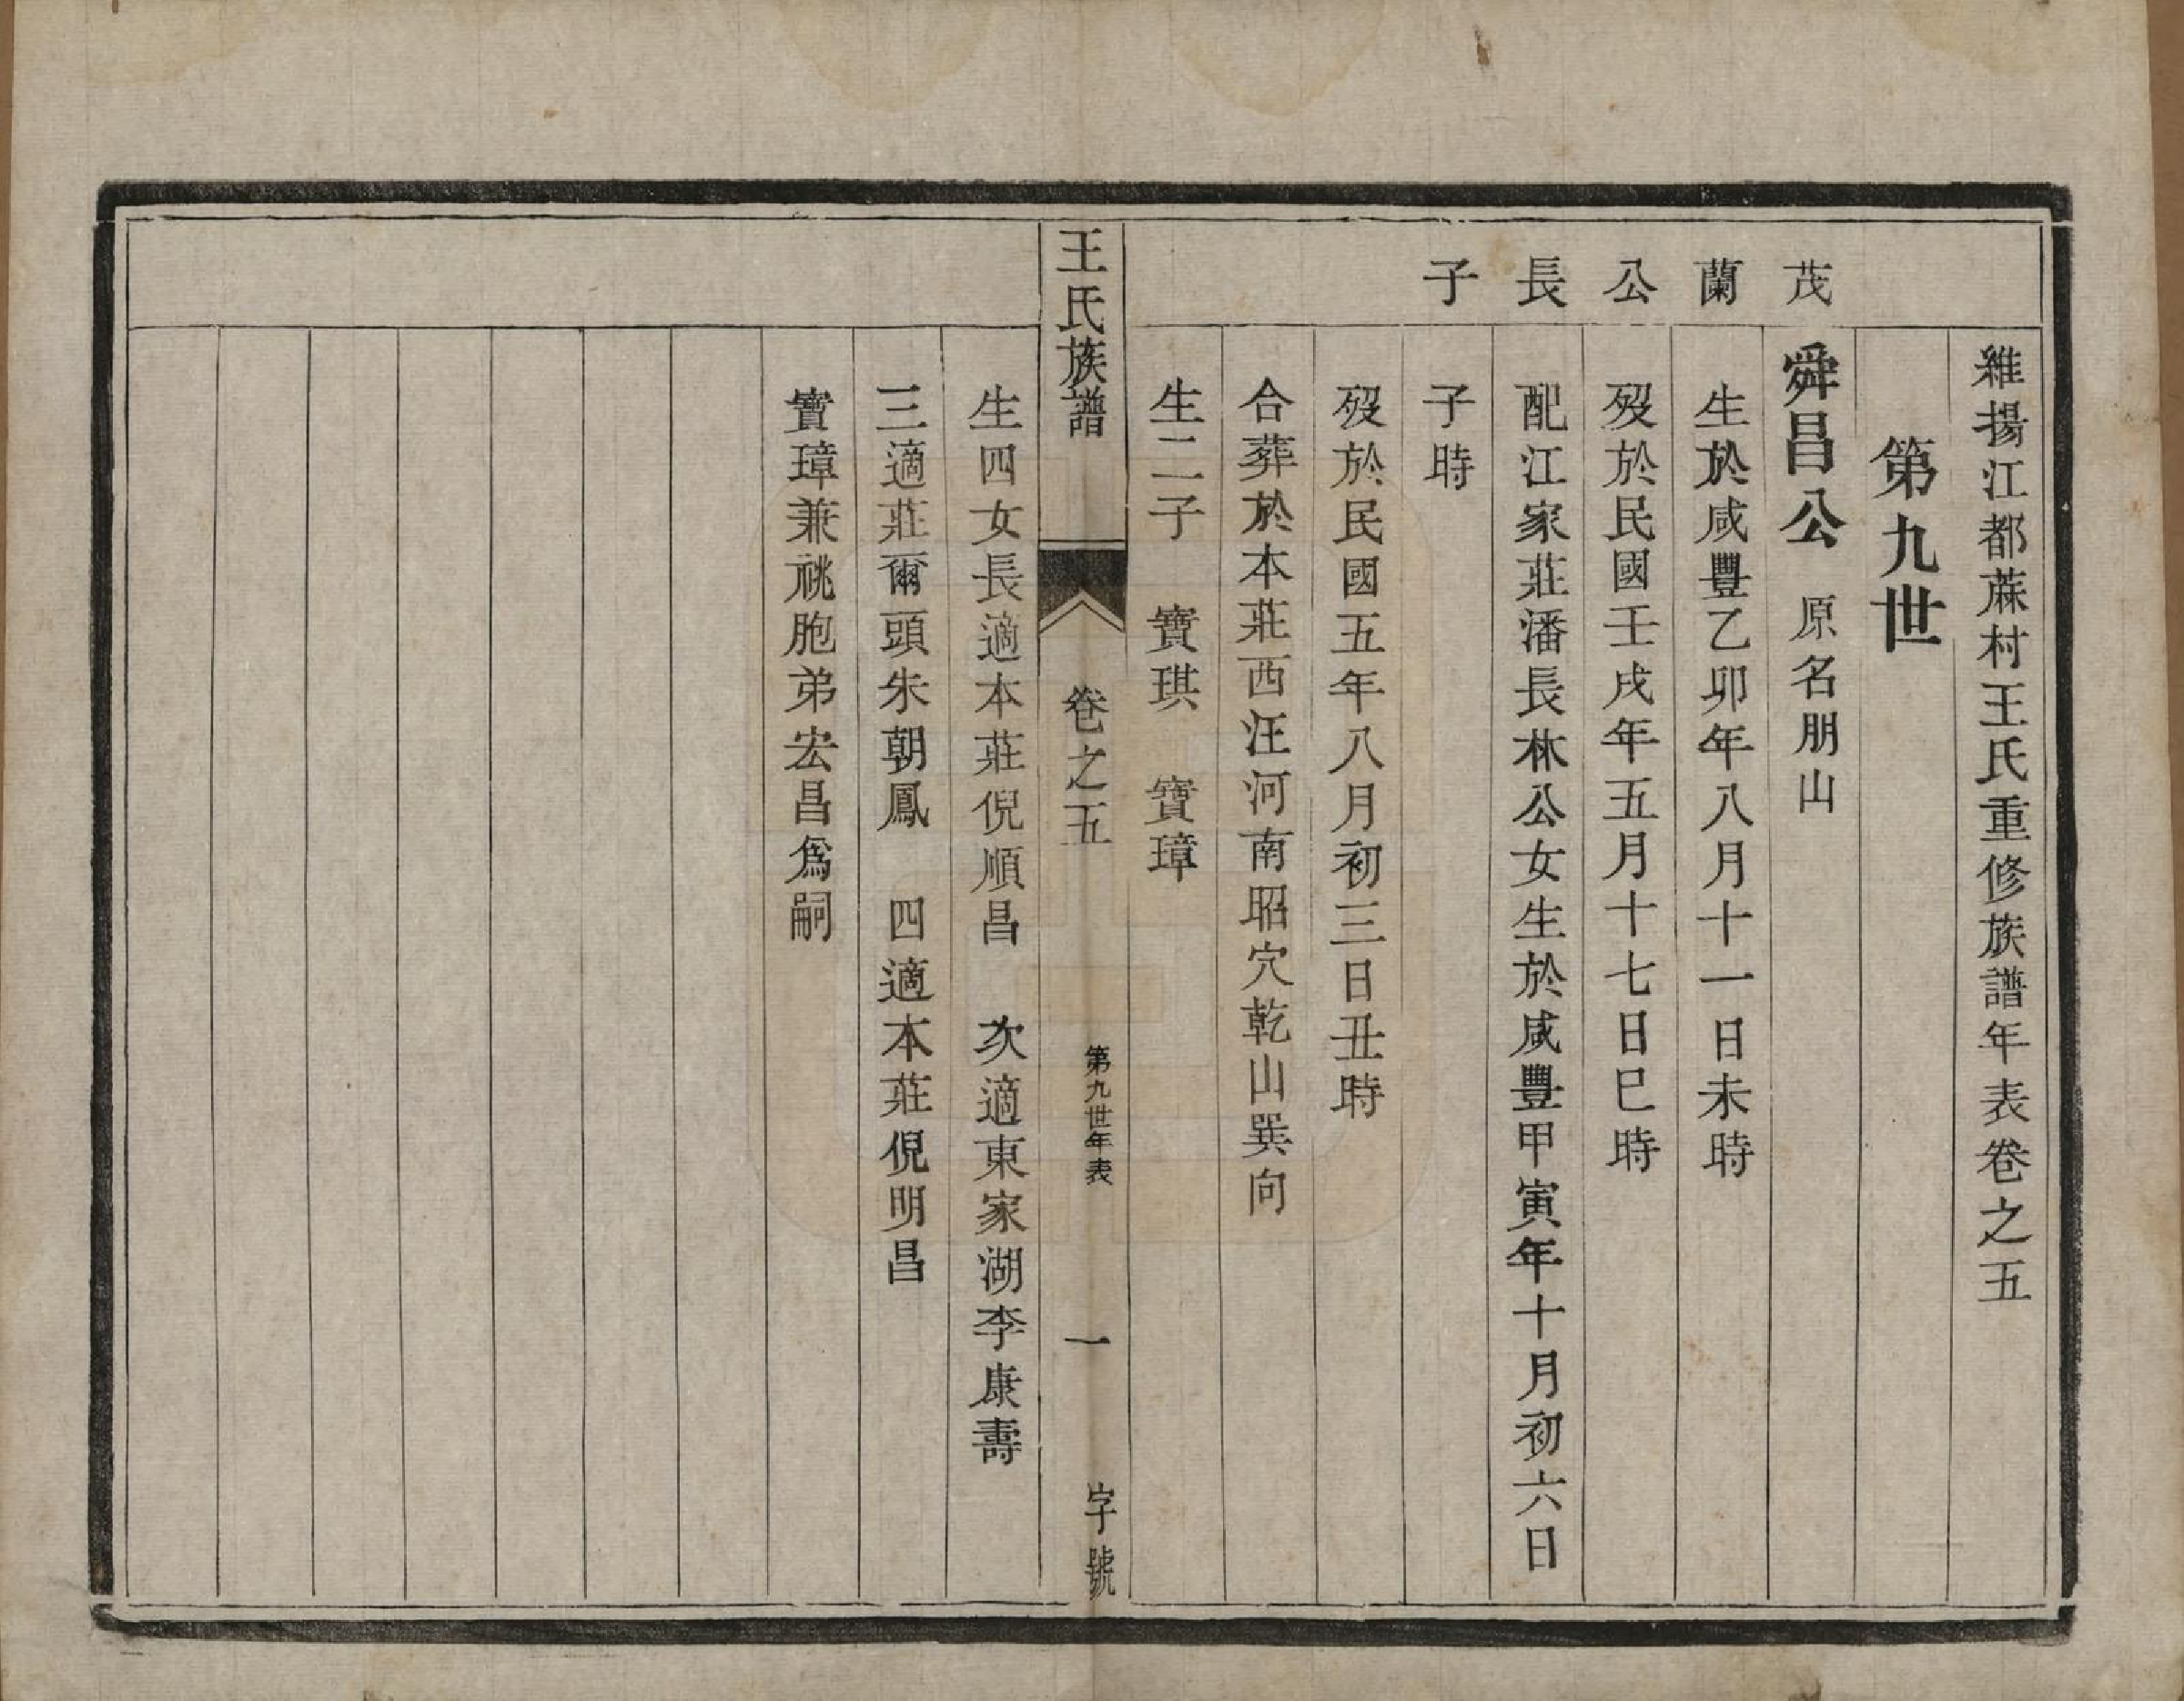 維揚江都蔴村王氏重修族譜年表卷之五
第九世
茂蘭公長子
舜昌公 原名朋山
生於咸豐乙卯年八月十一日未時
歿於民國壬戌年五月十七日巳時
配江家莊潘長林公女生於咸豐甲寅年十月初六日
子時
歿於民國五年八月初三日丑時
合葬於本莊西汪河南昭穴乾山巽向
生二子 寶琪 寶璋
王氏族譜 卷之五 第九世年表 一 字號
生四女長適本莊倪順昌 次適東家湖李康壽
三適莊爾頭朱朝鳳 四適本莊倪明昌
寶璋兼祧胞弟宏昌爲嗣